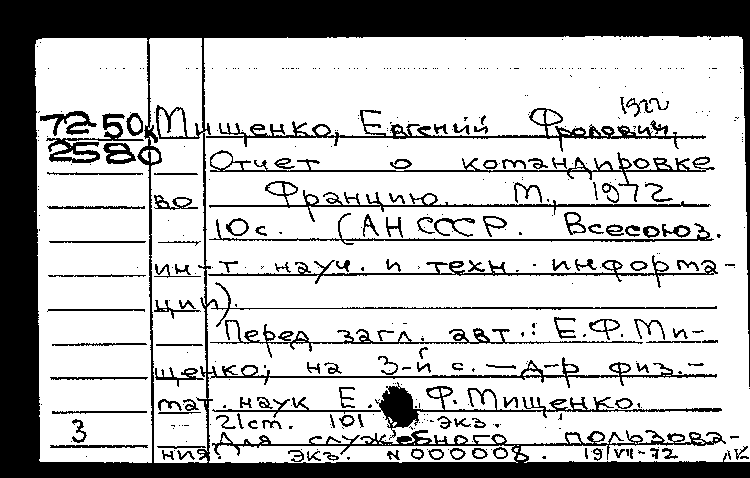 1922
72-50к Мищенко, Евгений Фролович,
2580 Отчет о командировке
во Францию. М., 1972.
10с. (АН СССР. Всесоюз.
ин-т науч. и техн. информа-
ции).
Перед загл. авт.: Е.Ф.Ми-
щенко; на 3-й с. — д-р физ.-
мат. наук Е. Ф. Мищенко.
21см. 101 экз.
3 Для служебного пользова-
ния. Экз. N 000008. 19/VII-72